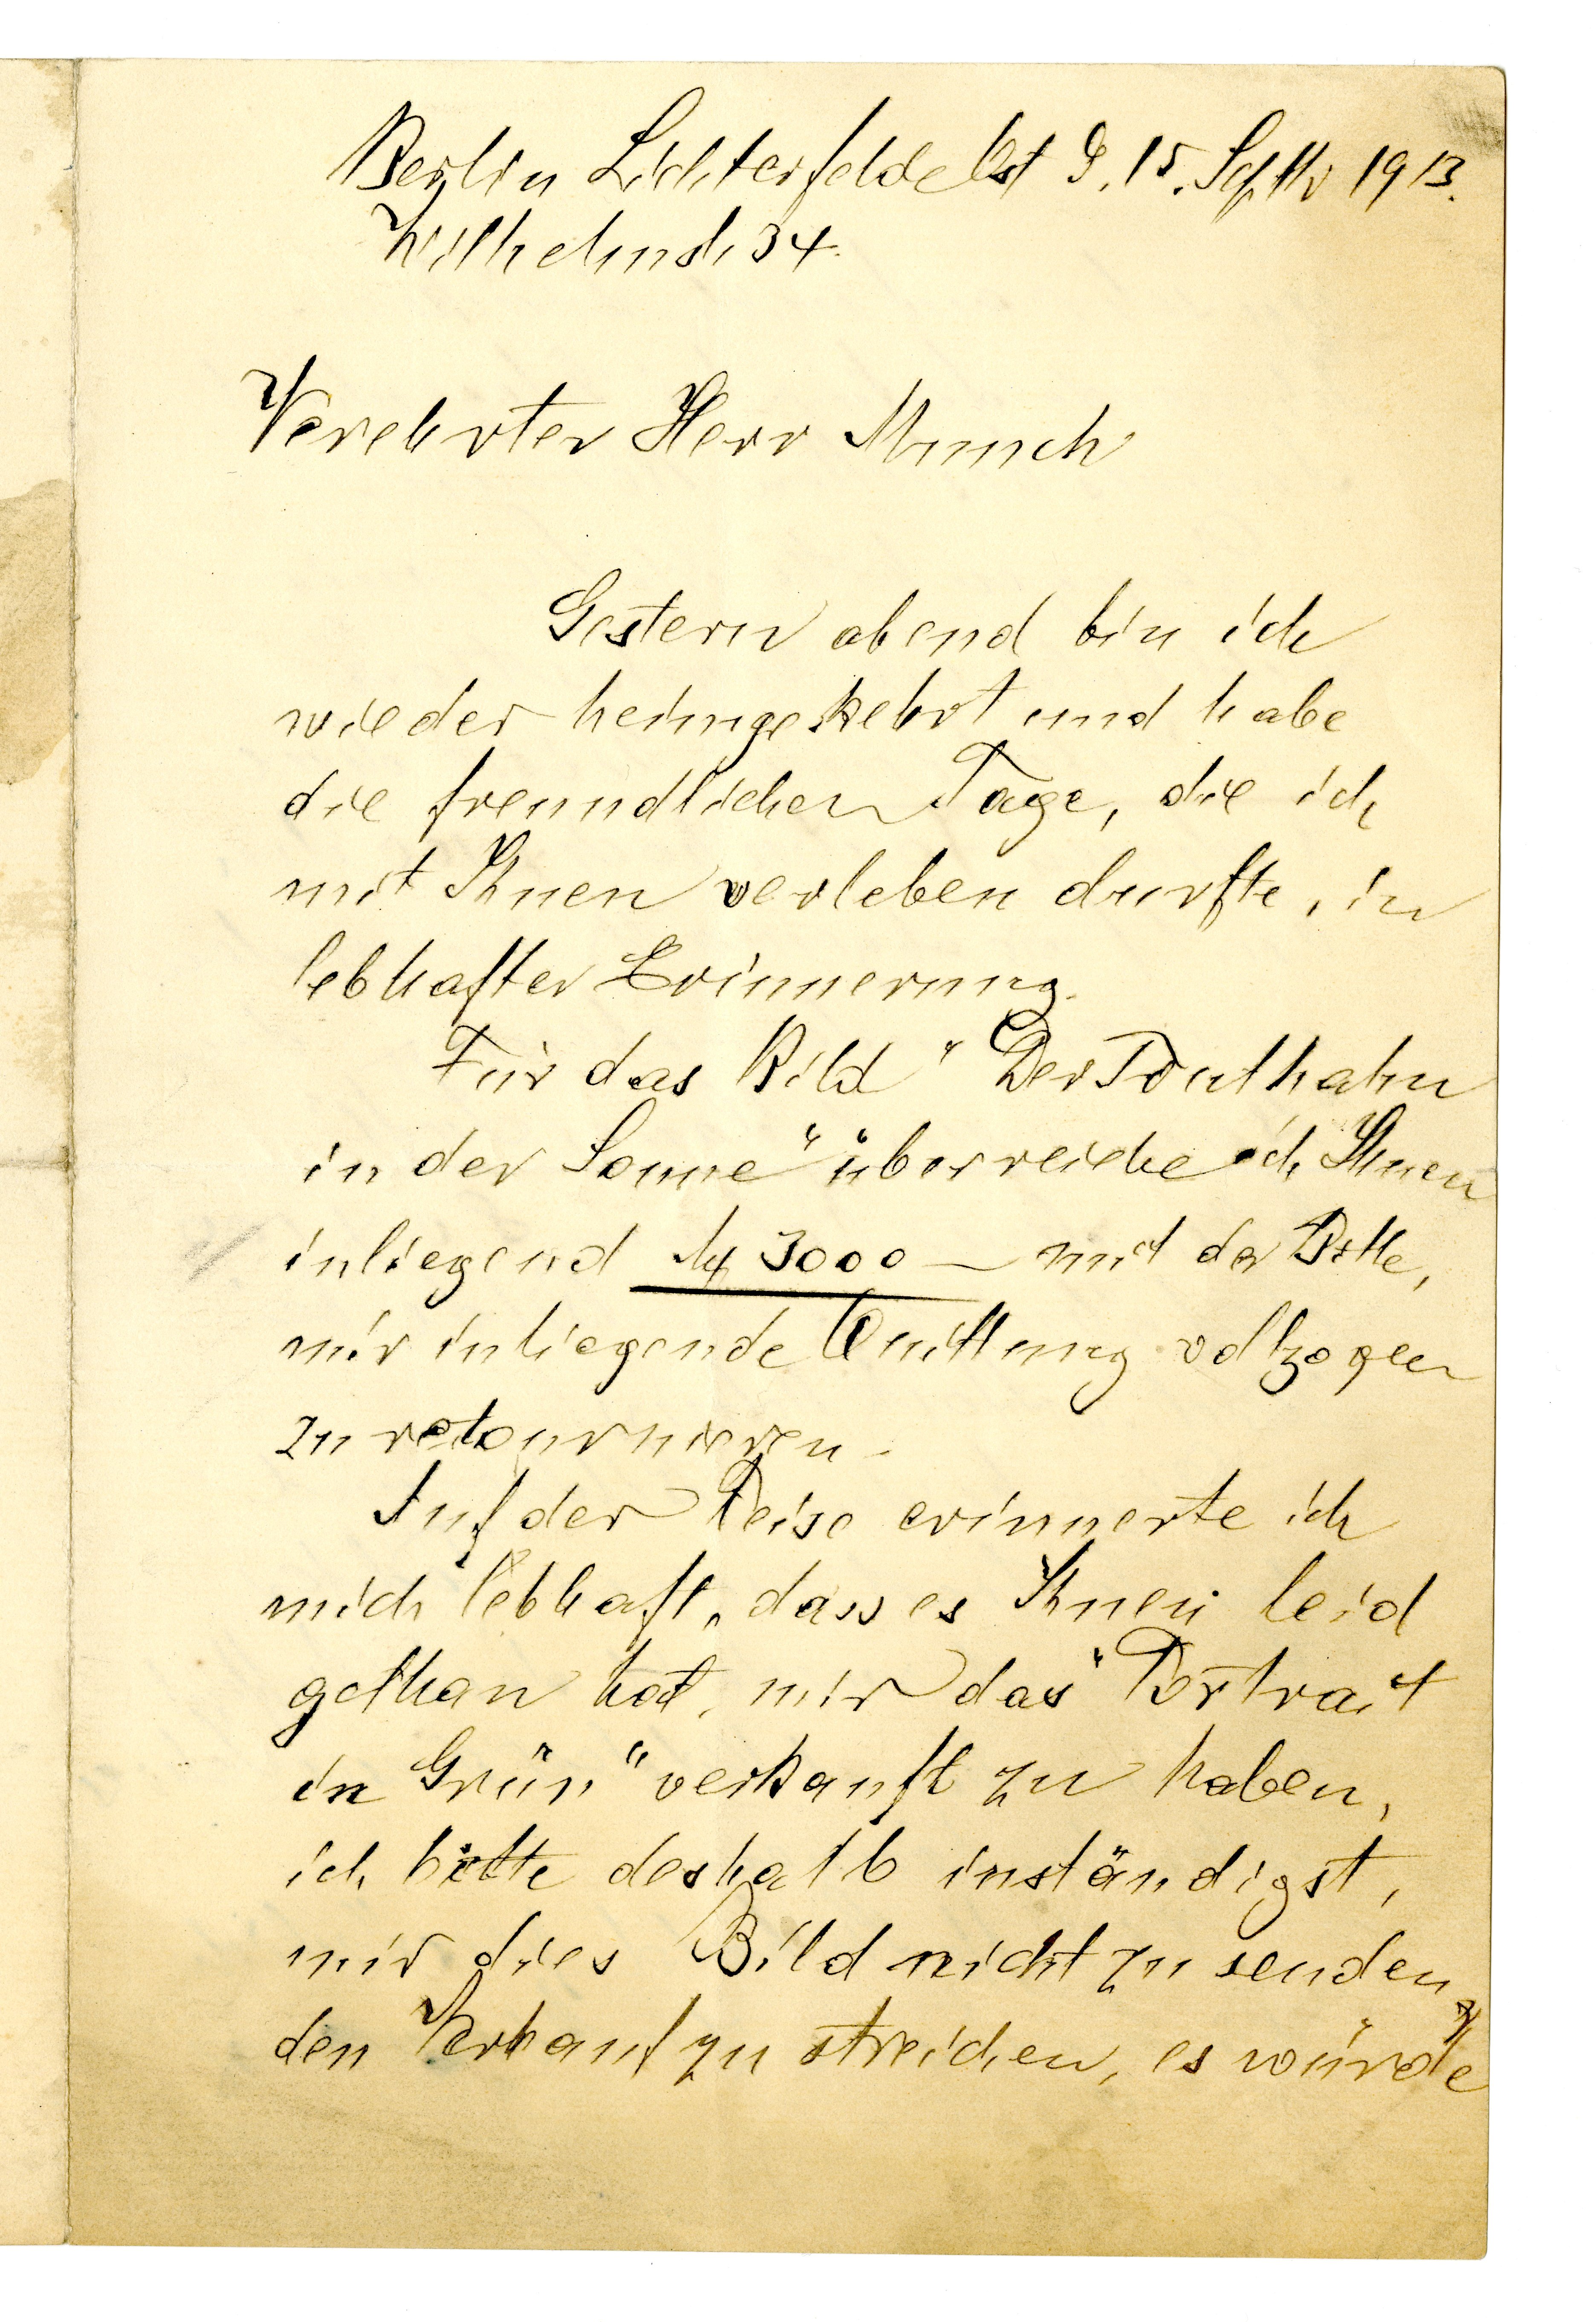 Berlin Lichterfelde Ost d. 15. Septbr 1913.
Wilhelmstr 34.
Verehrter Herr Munch
Gestern abend bin ich
wieder heimgekehrt und habe
die freundlichen Tage, die ich
mit Ihnen verleben durfte, in
lebhafter Erinnerung.
Für das Bild "Der Truthahn
in der Sonne" überreiche ich Ihnen
inliegend M 3000 – mit der Bitte,
mir inliegende Quittung vollzogen
zu retournieren.
Auf der Reise erinnerte ich
mich lebhaft, dass es Ihnen leid
gethan hat, mir das "Portrait
in Grün" verkauft zu haben,
ich bitte deshalb inständigst,
mir dies Bild nicht zu senden,
den Verkauf zu streichen, es würde